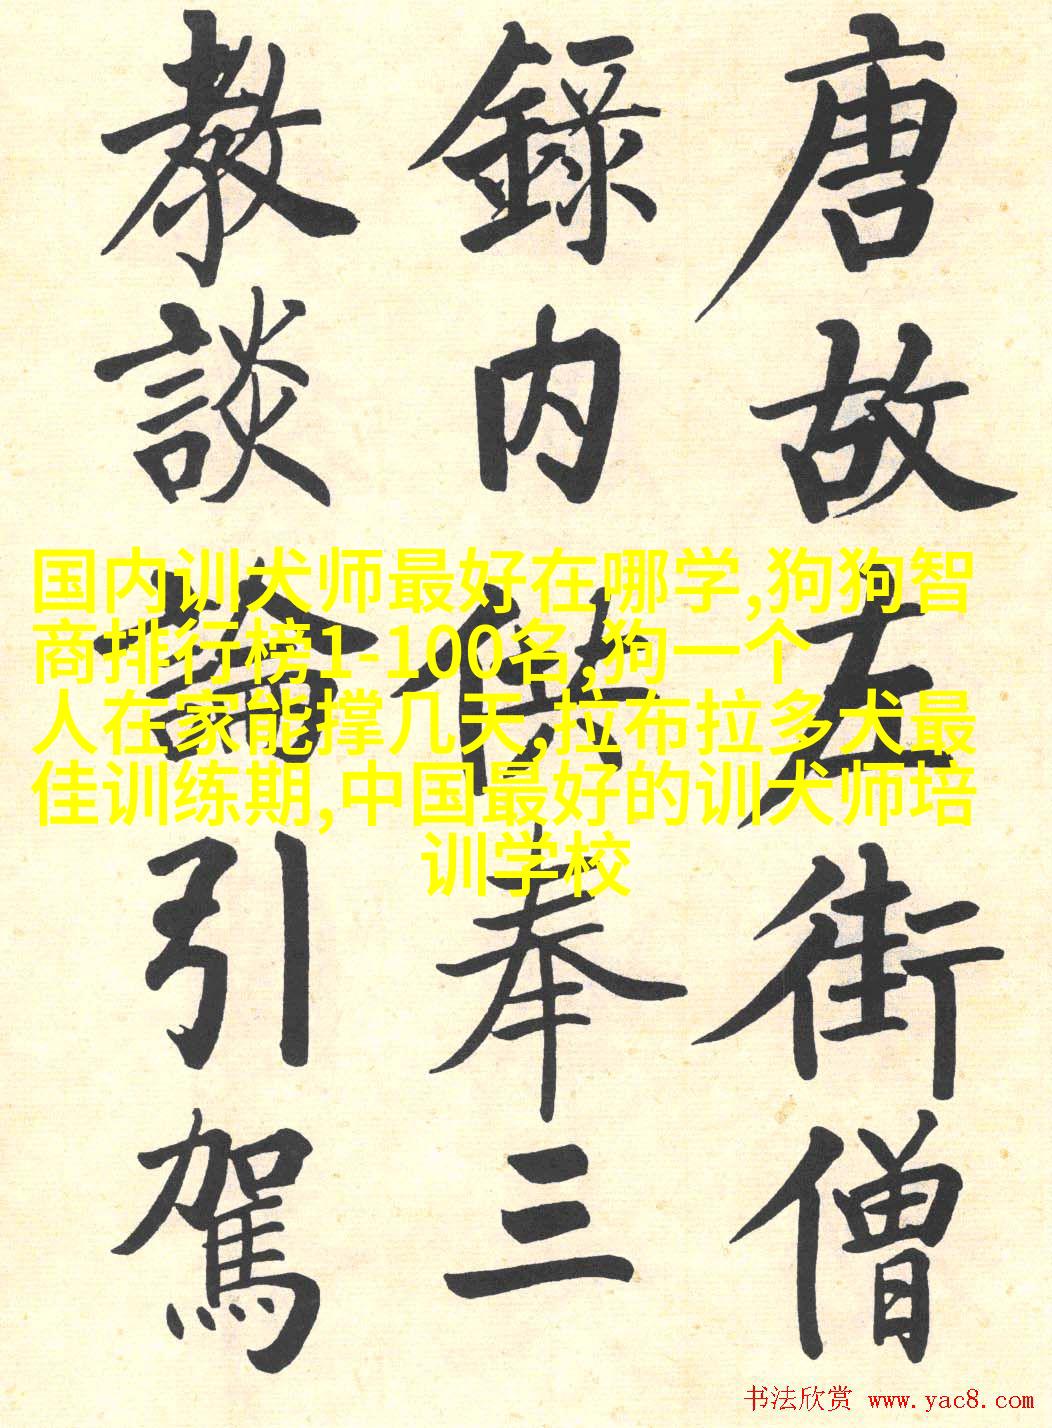 唐故左街僧
録内供奉三
教談論引駕
国内训犬师最好在哪学,狗狗智
商排行榜1-100名,狗一个
人在家能撑几天,拉布拉多犬最
佳训练期,中国最好的训犬师培
训学校
书法欣赏 www.yac8.com